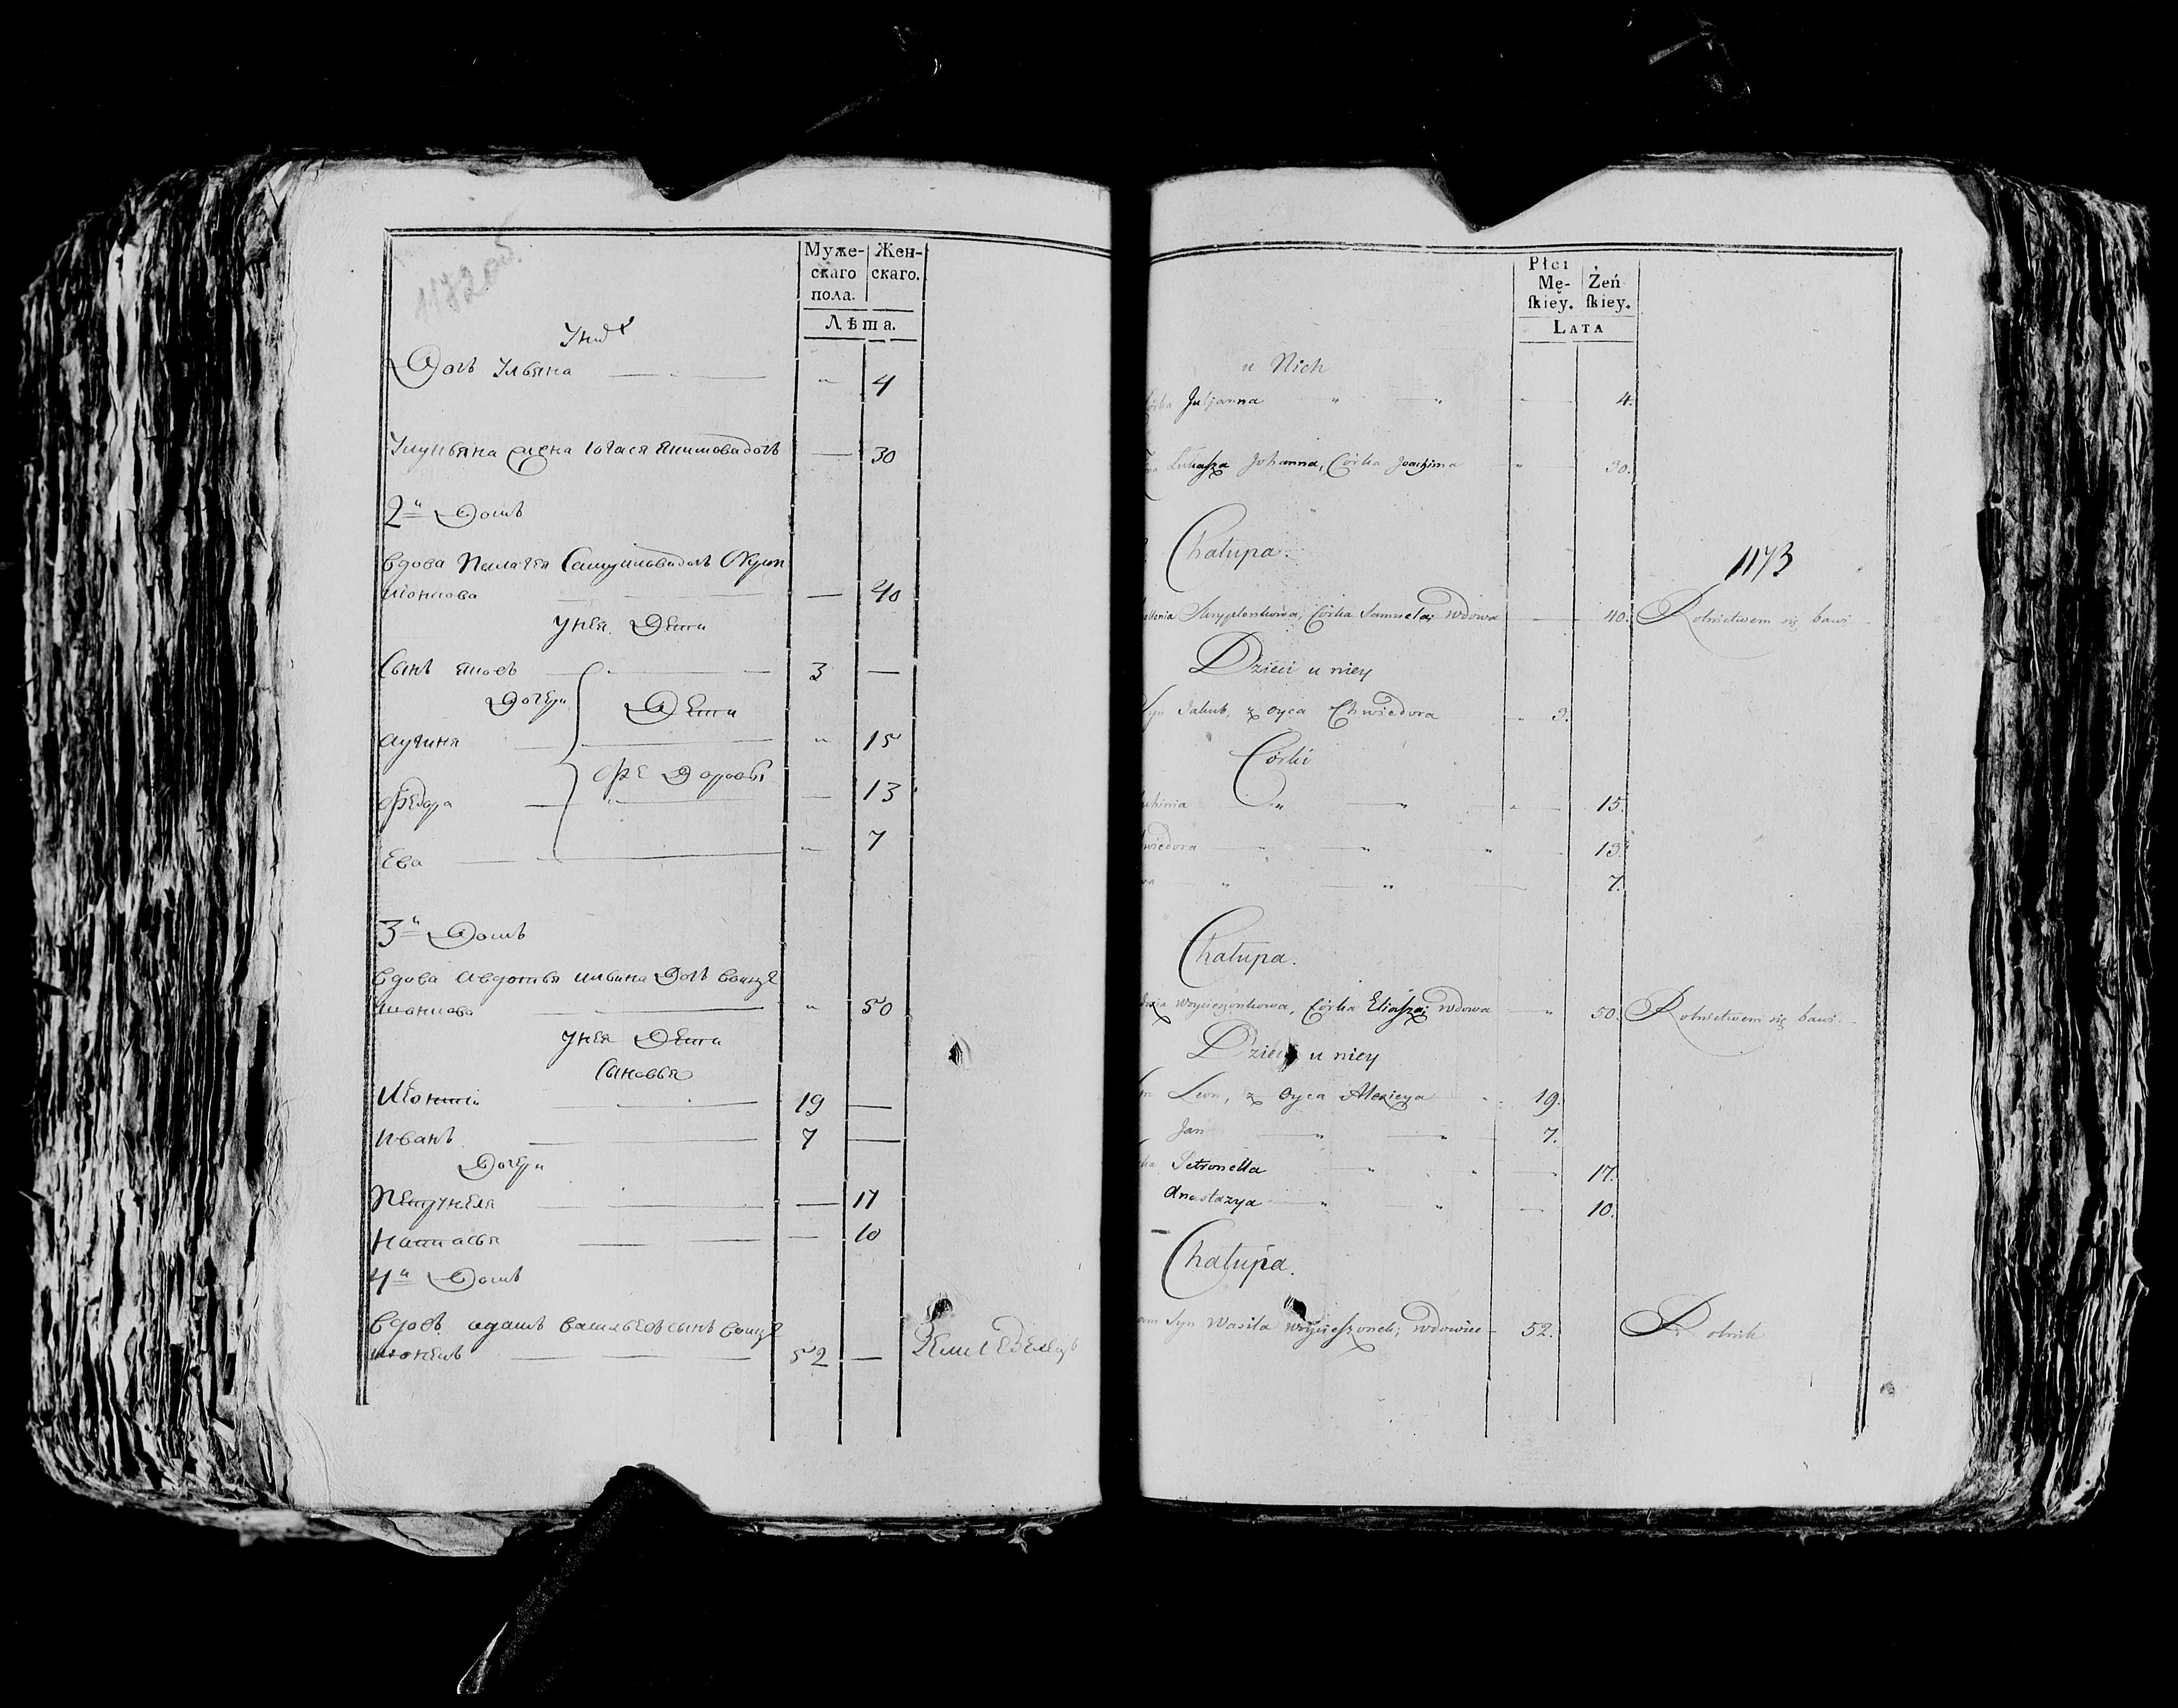 1172 об.
Муже-
скаго
пола.
Жен-
скаго.
Лѣта.
У них
Дочь Ульяна 4
жена Югася Якимова дочь 30
2й Домъ
Вдова Пелагея Самуилова дочь
40
У нея Дети
Сынъ Яковъ 3
Дочери Дети
15
Федора 13
Ева 7
3й Домъ
Вдова Авдотья Ильина Дочь
50
У нея Дети
Сыновья
19
Иванъ 7
Дочери
Петрунеля 17
Настасья 10
4й Домъ
Вдов. Адамъ Васильевъ сынъ
52 Земледелецъ
Płci
Mę-
ſkiey.
Żeń
ſkiey.
LATA
u Nich
Julianna 4.
Łukasza Johanna, Córka Joachima 30.
Chałupa.
1173
Skryplonkowa, Córka Samuela; wdowa 40. Rolnictwem się bawi
Dzieci u niey
Syn Jakub, z oyca Chwiedora 3.
Córki
15.
13.
7.
Chałupa.
Woycieszonkowa, Córka Eliasza; wdowa 50. Rolnictwem się bawi
Dzieci u niey
Leon, z oyca Alexieya 19.
Jan 7.
Petronella 17.
Anastazya 10.
Chałupa.
Syn Wasila Woycieszonek; wdowiec 52. Rolnik